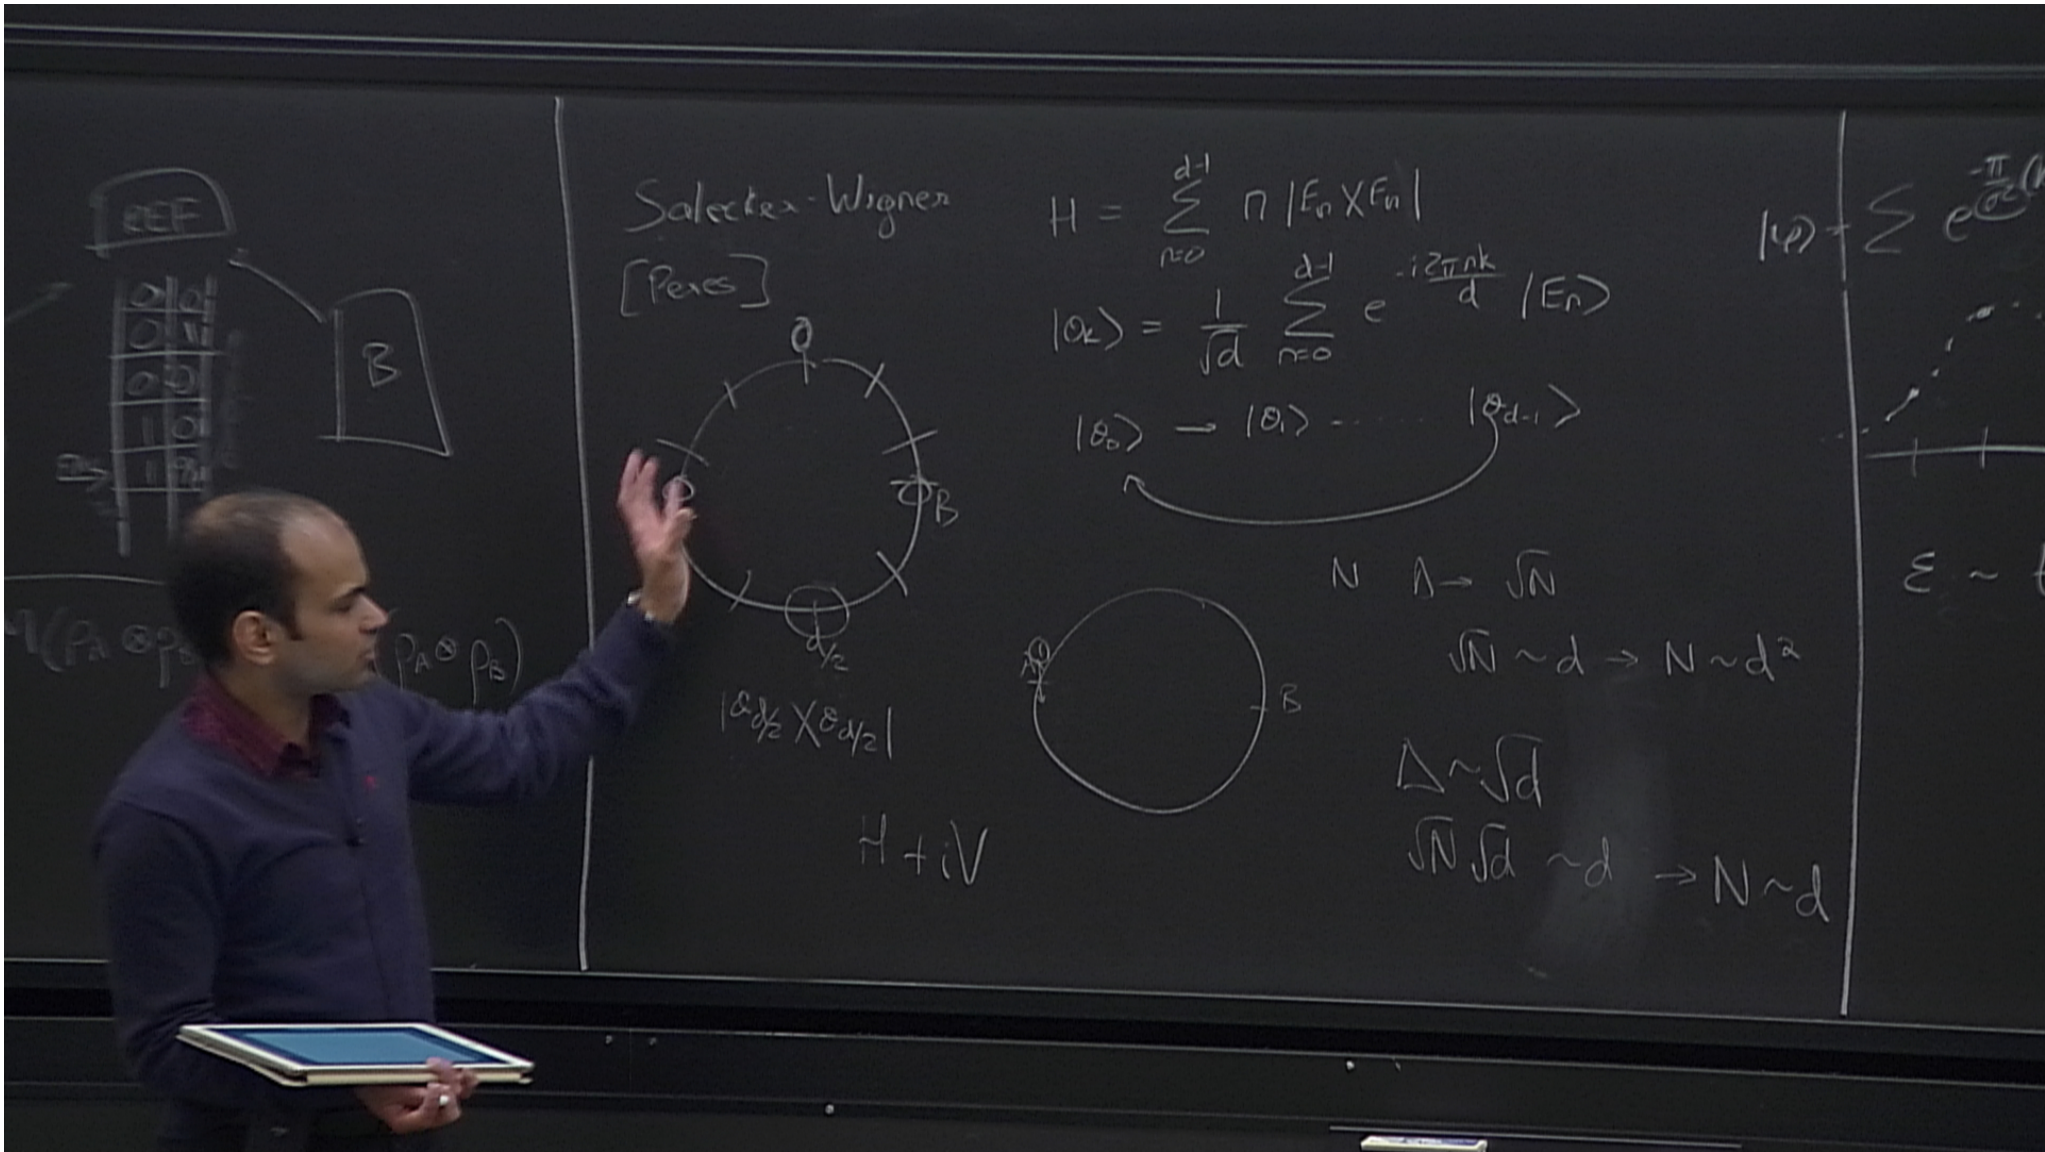 REF
0 0
0 1
0 0
1 0
1
B
(ρ_A ⊗ ρ
(ρ_A ⊗ ρ_B)
Salecker-Wigner
[Peres]
0
B
d/2
|θ_{d/2}⟩⟨θ_{d/2}|
H + iV
H = Σ_{n=0}^{d-1} n |E_n⟩⟨E_n|
|θ_k⟩ = 1/√d Σ_{n=0}^{d-1} e^{-i2πnk/d} |E_n⟩
|θ_0⟩ → |θ_1⟩ ...... |θ_{d-1}⟩
B
N Δ → √N
√N ~ d → N ~ d²
Δ ~ √d
√N √d ~ d → N ~ d
|ψ⟩ = Σ e^{-π/σ²(
ε ~